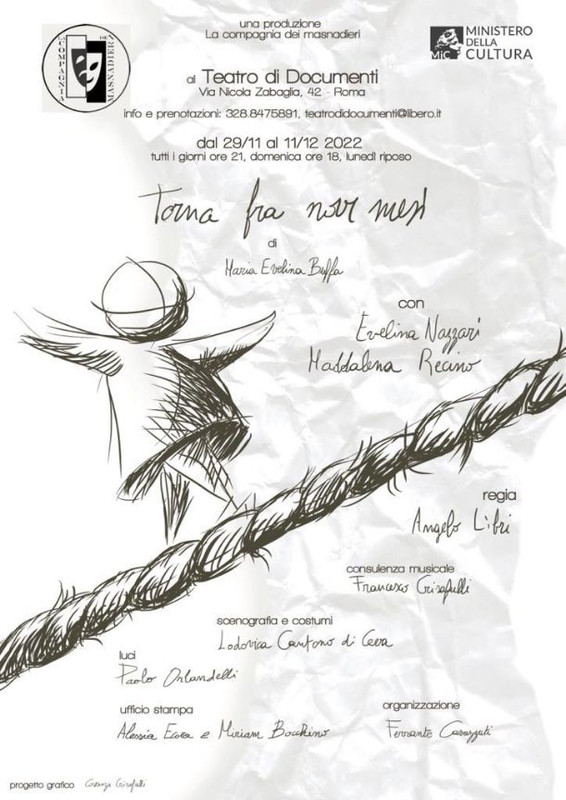 una produzione
La compagnia dei masnadieri
LA COMPAGNIA DEI MASNADIERI
MiC MINISTERO
DELLA
CULTURA
al Teatro di Documenti
Via Nicola Zabaglia, 42 - Roma
info e prenotazioni: 328.8475891, teatrodidocumenti@libero.it
dal 29/11 al 11/12 2022
tutti i giorni ore 21, domenica ore 18, lunedì riposo
Torna fra nove mesi
di
Maria Evelina Buffa
con
Evelina Nazzari
Maddalena Recino
regia
Angelo Libri
consulenza musicale
Francesco Grisafulli
scenografia e costumi
Lodovica Cantono di Ceva
luci
Paolo Orlandelli
ufficio stampa
Alessia Ecora e Miriam Bocchino
organizzazione
Ferrante
progetto grafico